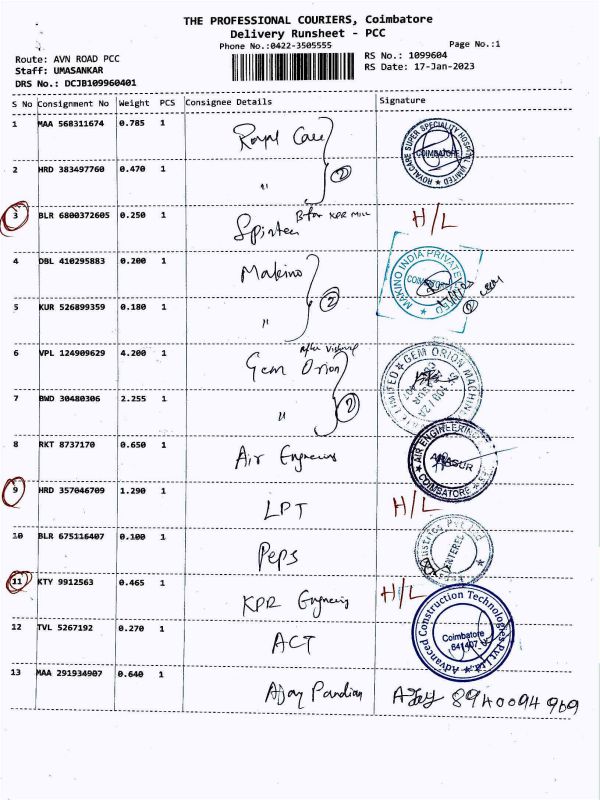 THE PROFESSIONAL COURIERS, Coimbatore
Delivery Runsheet - PCC
Phone No.:0422-3505555
Page No.:1
Route: AVN ROAD PCC
RS No.: 1099604
Staff: UMASANKAR
RS Date: 17-Jan-2023
DRS No.: DCJB109960401
S No Consignment No Weight PCS Consignee Details Signature
1 MAA 568311674 0.785 1 Royal Care
ROYALCARE SUPER SPECIALITY HOSPITAL LIMITED COIMBATORE
2 HRD 383497760 0.470 1 " 2
3 BLR 6800372605 0.250 1 Spintex Bfor KPR Mill H/L
4 DBL 410295883 0.200 1 Makino
MAKINO INDIA PRIVATE LIMITED COIMBATORE
5 KUR 526899359 0.180 1 " 2
2
6 VPL 124909629 4.200 1 Gem Orion After
GEM ORION MACHIN
LIMITED
7 BWD 30480306 2.255 1 " 2
8 RKT 8737170 0.650 1 Air Engineers
AIR ENGINEERING
COIMBATORE
9 HRD 357046709 1.290 1 LPT H/L
10 BLR 675116407 0.100 1 Peps
Pvt Ltd
11 KTY 9912563 0.465 1 KPR Engineering H/L
12 TVL 5267192 0.270 1 ACT
Advanced Construction Technologies Pvt.Ltd.
Coimbatore
641407
13 MAA 291934907 0.640 1 Ajay Pandian Ajay 8940094969